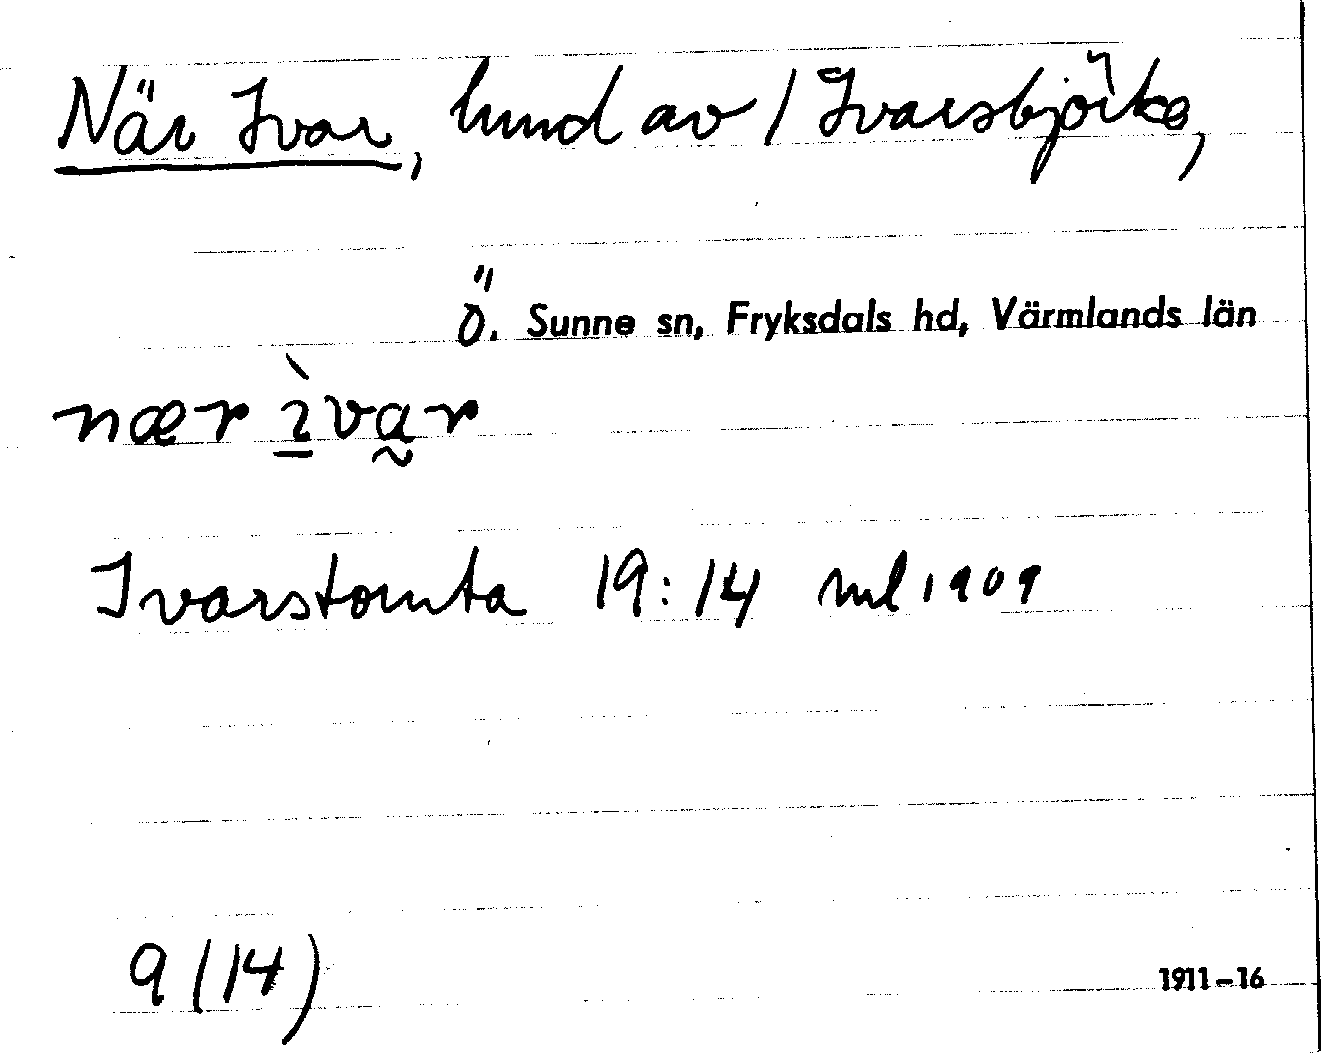 När Ivar, hmd av 1 Ivarsbjörke,
Ö. Sunne sn, Fryksdals hd, Värmlands län
nær ìvar
Ivarstomta 19:14 ml 1909
9 (14)
1911-16